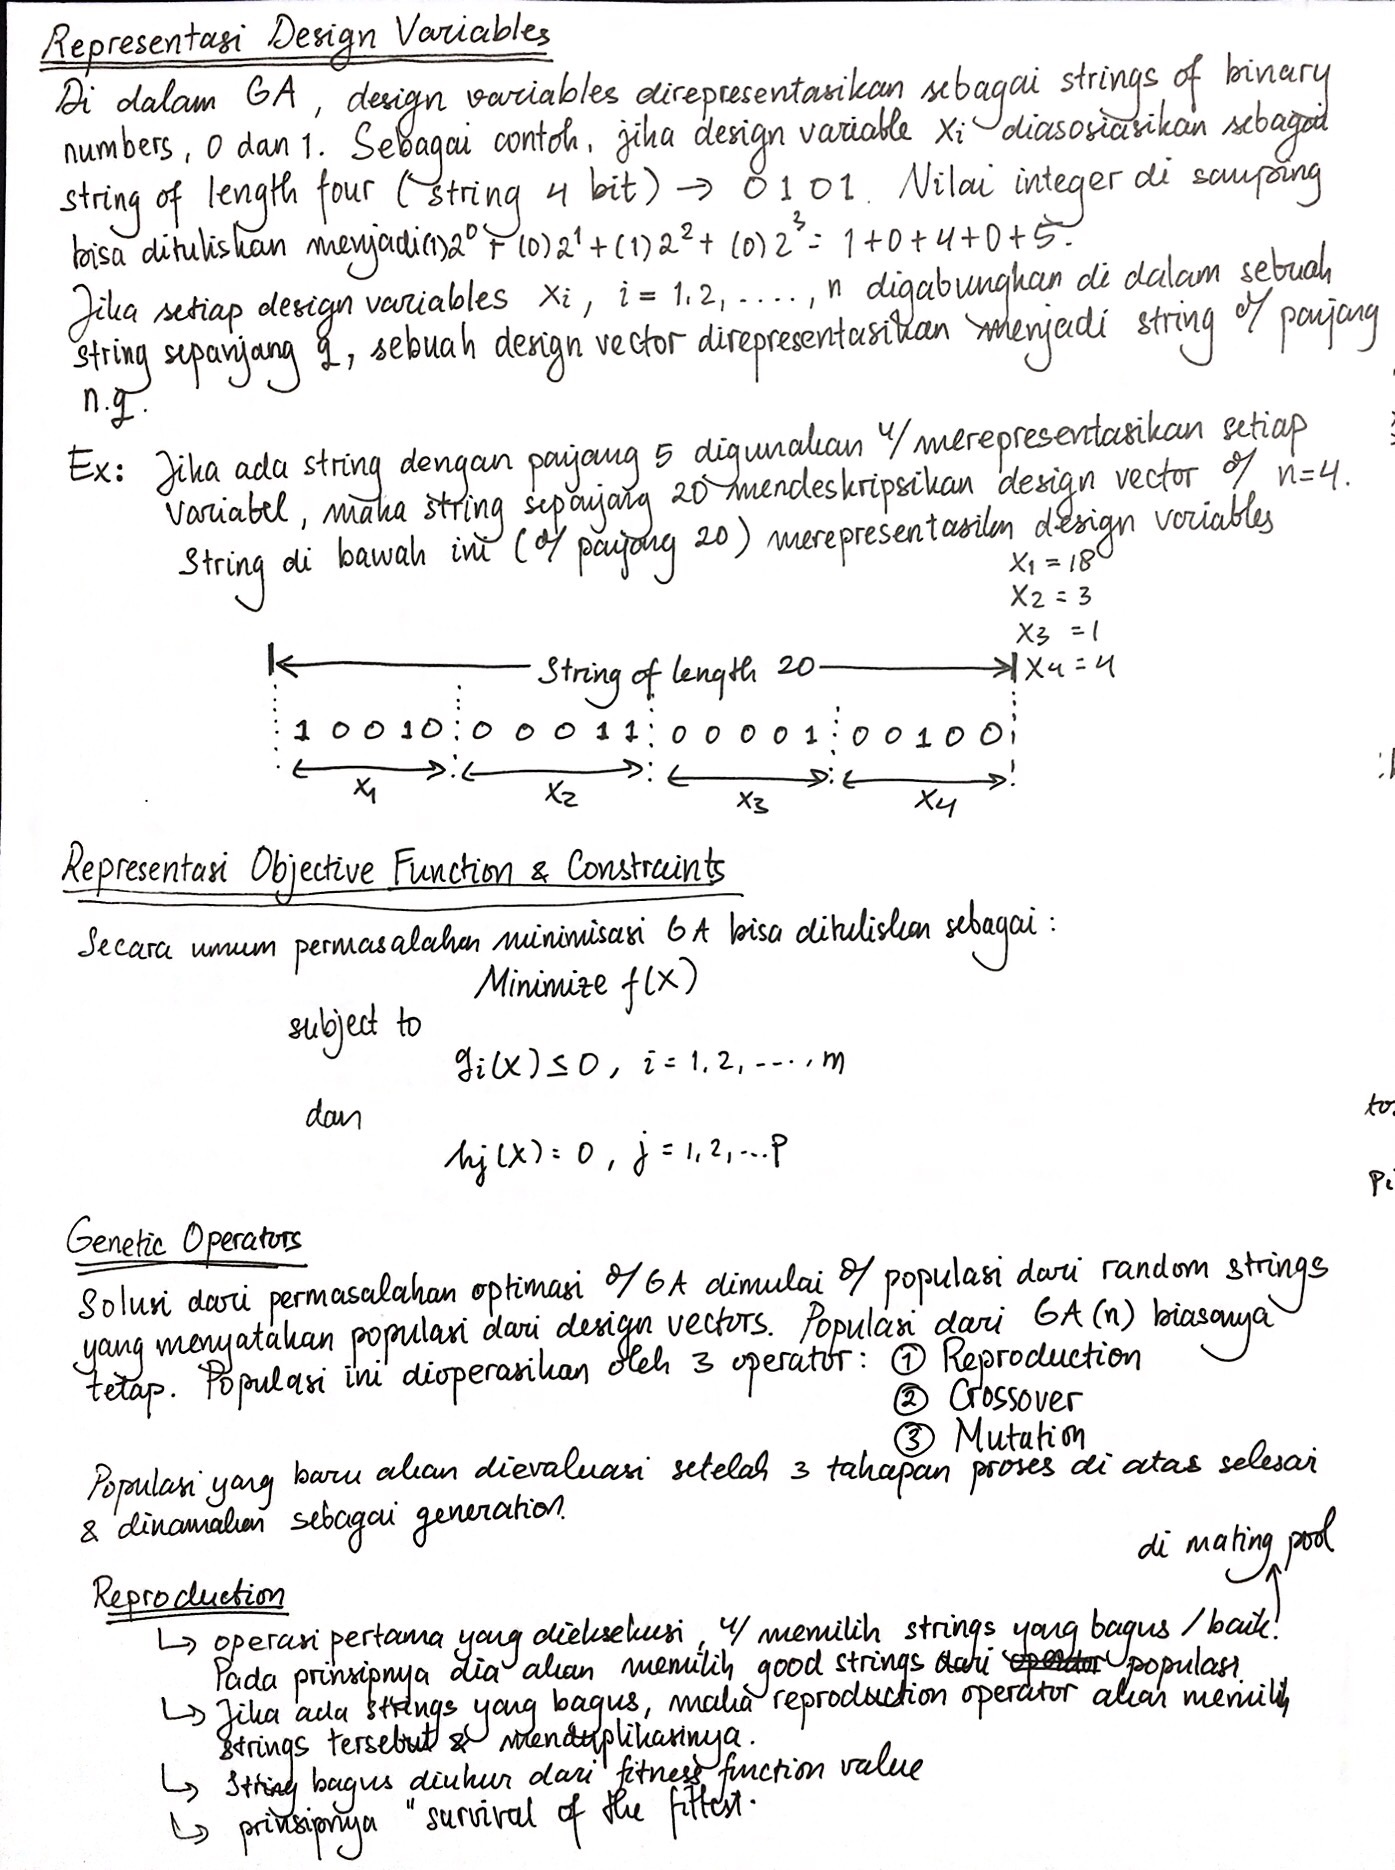 Representasi Design Variables
Di dalam GA, design variables direpresentasikan sebagai strings of binary
numbers, 0 dan 1. Sebagai contoh, jika design variable Xi diasosiasikan sebagai
string of length four (string 4 bit) → 0 1 0 1. Nilai integer di samping
bisa dituliskan menjadi (1)2⁰ + (0)2¹ + (1)2² + (0)2³ = 1+0+4+0+5.
Jika setiap design variables Xi, i = 1,2, ...., n digabungkan di dalam sebuah
string sepanjang q, sebuah design vector direpresentasikan menjadi string dg panjang
n.q.
Ex: Jika ada string dengan panjang 5 digunakan u/ merepresentasikan setiap
variabel, maka string sepanjang 20 mendeskripsikan design vector dg n=4.
String di bawah ini (dg panjang 20) merepresentasikn design variables
X1 = 18
X2 = 3
X3 = 1
X4 = 4
String of length 20
1 0 0 1 0 0 0 0 1 1 0 0 0 0 1 0 0 1 0 0
X1 X2 X3 X4
Representasi Objective Function & Constraints
Secara umum permasalahan minimisasi GA bisa dituliskan sebagai :
Minimize f(X)
subject to
gi(X) ≤ 0, i = 1,2, ...., m
dan
hj(X) = 0, j = 1,2,...p
Genetic Operators
Solusi dari permasalahan optimasi dg GA dimulai dg populasi dari random strings
yang menyatakan populasi dari design vectors. Populasi dari GA (n) biasanya
tetap. Populasi ini dioperasikan oleh 3 operator: ① Reproduction
② Crossover
③ Mutation
Populasi yang baru akan dievaluasi setelah 3 tahapan proses di atas selesai
& dinamakan sebagai generation.
di mating pool
Reproduction
↳ operasi pertama yang dieksekusi, u/ memilih strings yang bagus / baik
Pada prinsipnya dia akan memilih good strings dari populasi
↳ Jika ada strings yang bagus, maka reproduction operator akan memilih
strings tersebut & menduplikasinya.
↳ String bagus diukur dari fitness function value
↳ prinsipnya "survival of the fittest.
to
Pi